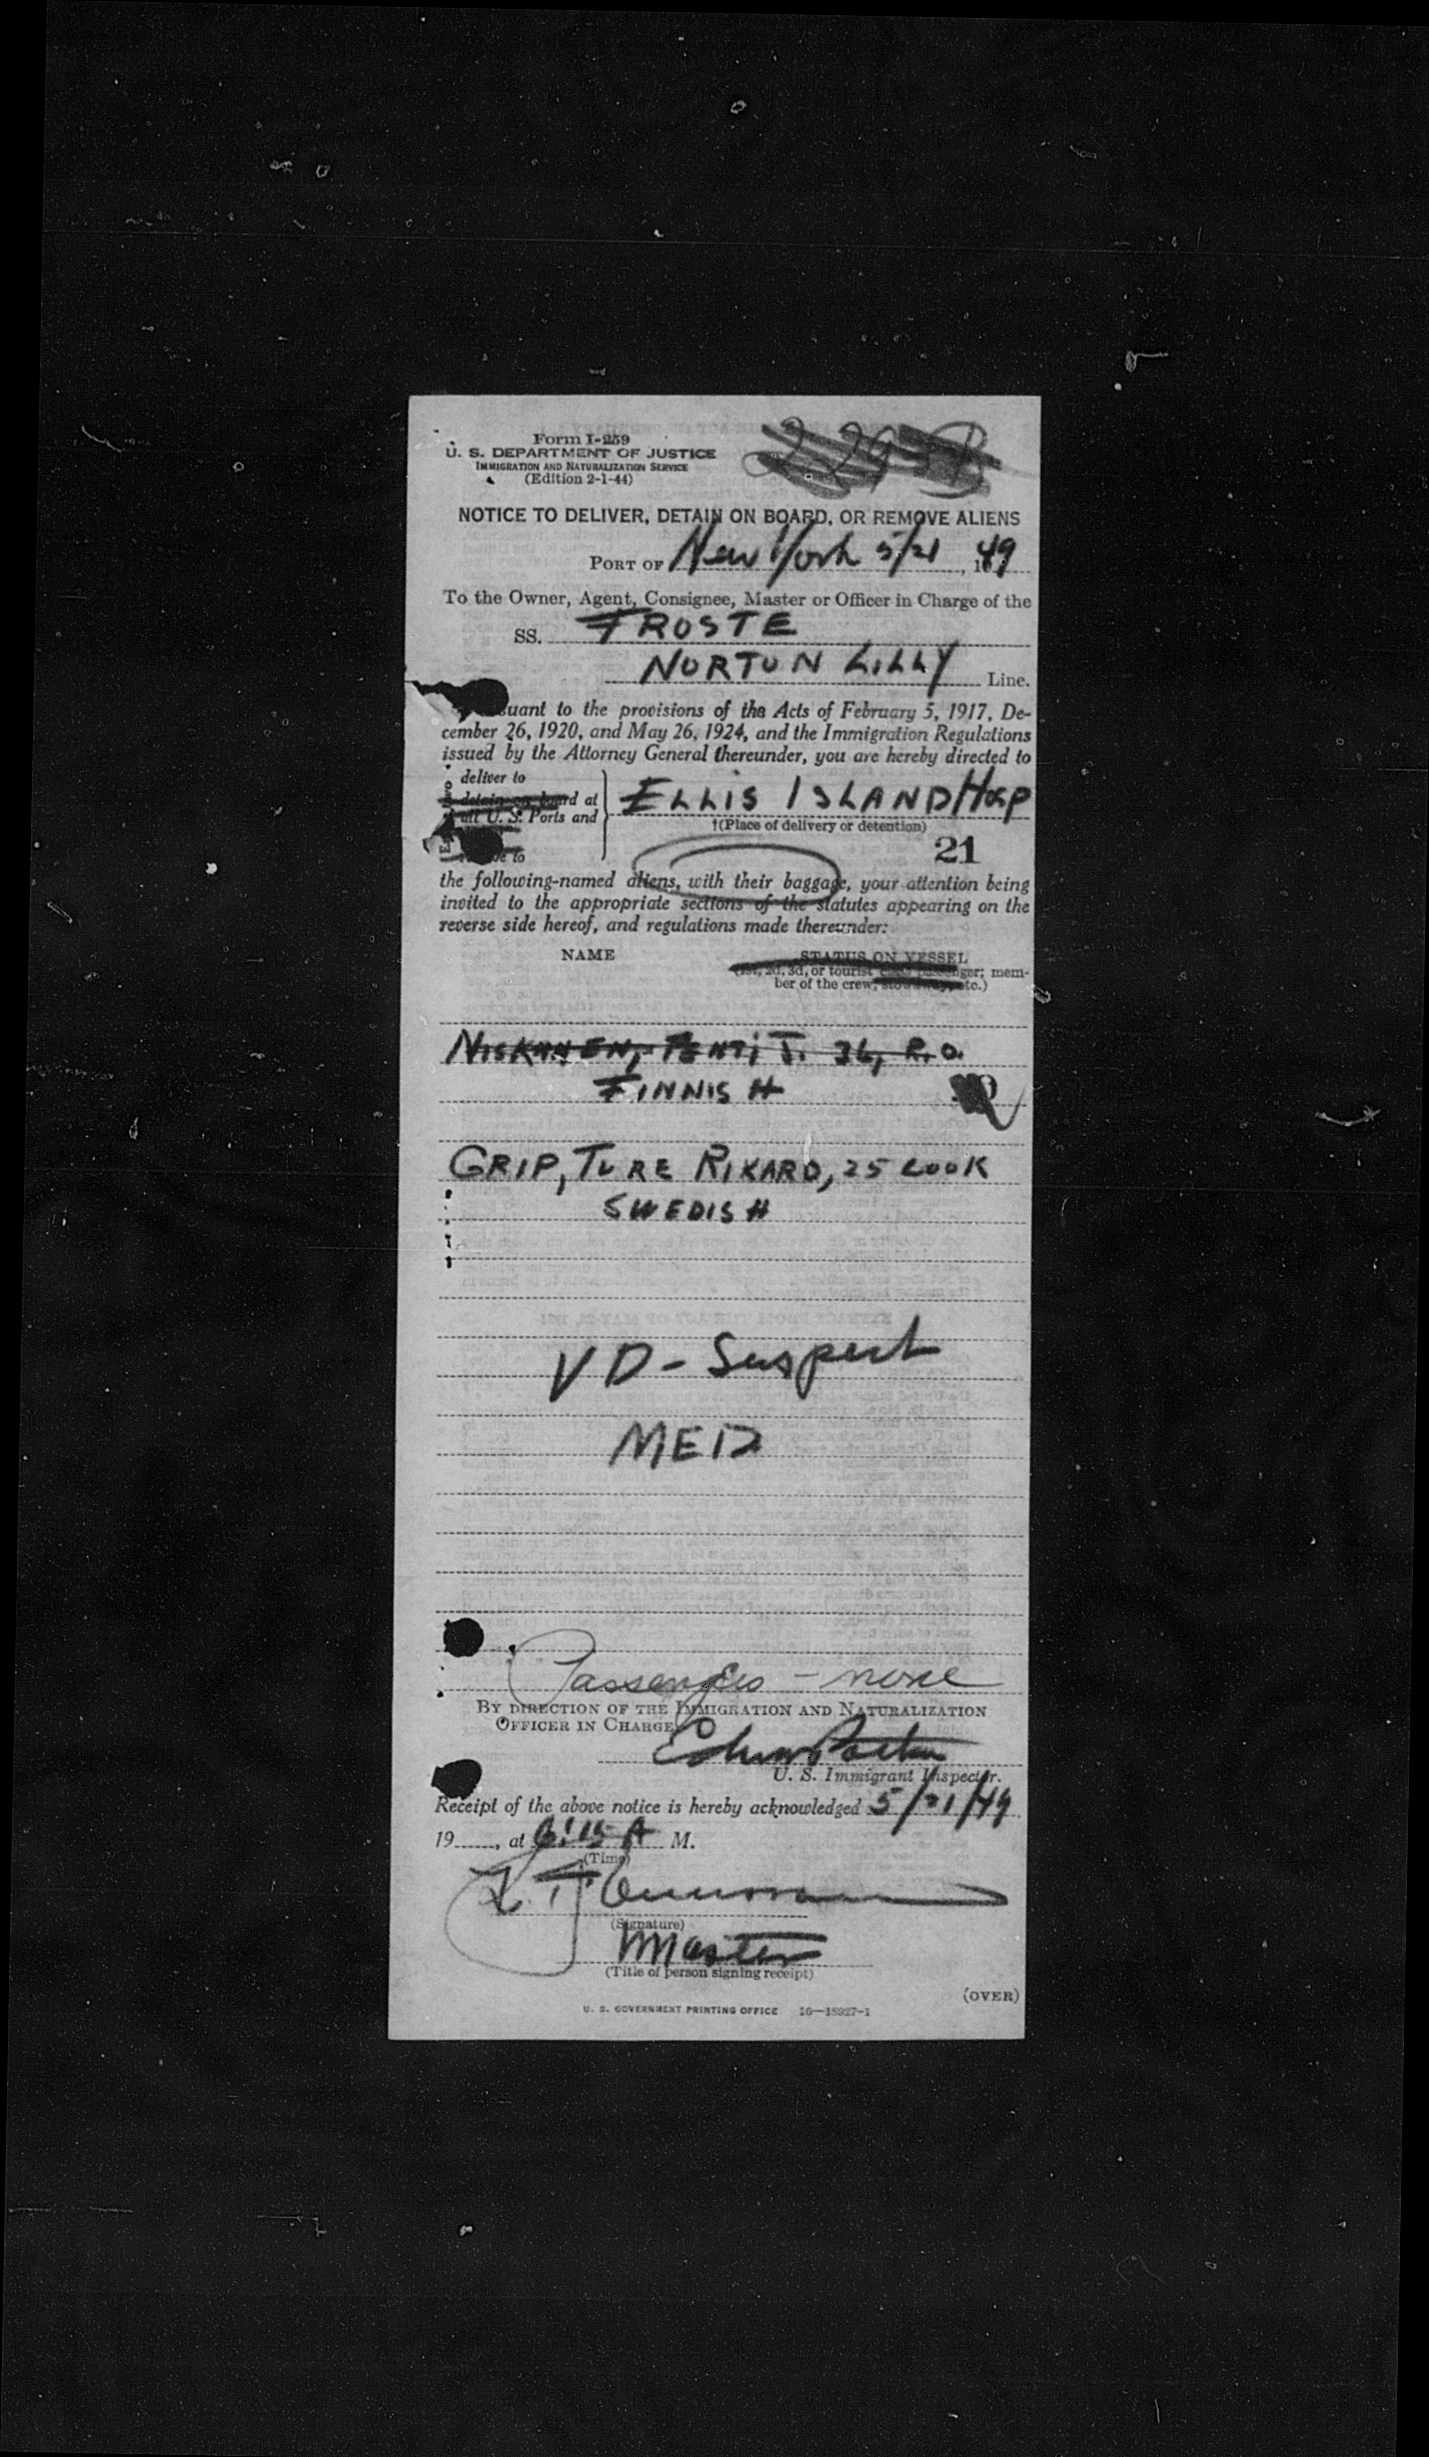 Form I-259
U. S. DEPARTMENT OF JUSTICE
IMMIGRATION AND NATURALIZATION SERVICE
(Edition 2-1-44)
NOTICE TO DELIVER, DETAIN ON BOARD, OR REMOVE ALIENS
PORT OF New York 5/21, 1949
To the Owner, Agent, Consignee, Master or Officer in Charge of the
SS. FROSTE
NORTON LILLY Line.
suant to the provisions of the Acts of February 5, 1917, De-
cember 26, 1920, and May 26, 1924, and the Immigration Regulations
issued by the Attorney General thereunder, you are hereby directed to
deliver to
detain on board at
all U. S. Ports and
ELLIS ISLAND HOSP
†(Place of delivery or detention)
to
21
the following-named aliens, with their baggage, your attention being
invited to the appropriate sections of the statutes appearing on the
reverse side hereof, and regulations made thereunder:
NAME
STATUS ON VESSEL
(1st, 2d, 3d, or tourist class passenger; mem-
ber of the crew, stowaway, etc.)
NISKANEN, PENTI J. 36, R.O.
FINNISH
GRIP, TURE RIKARD, 25 COOK
SWEDISH
VD - Suspect
MED
Passengers - none
BY DIRECTION OF THE IMMIGRATION AND NATURALIZATION
OFFICER IN CHARGE
U. S. Immigrant Inspector.
Receipt of the above notice is hereby acknowledged 5/21/49
19___, at 6:15 A M.
(Time)
(Signature)
Master
(Title of person signing receipt)
(OVER)
U. S. GOVERNMENT PRINTING OFFICE 16—18927-1